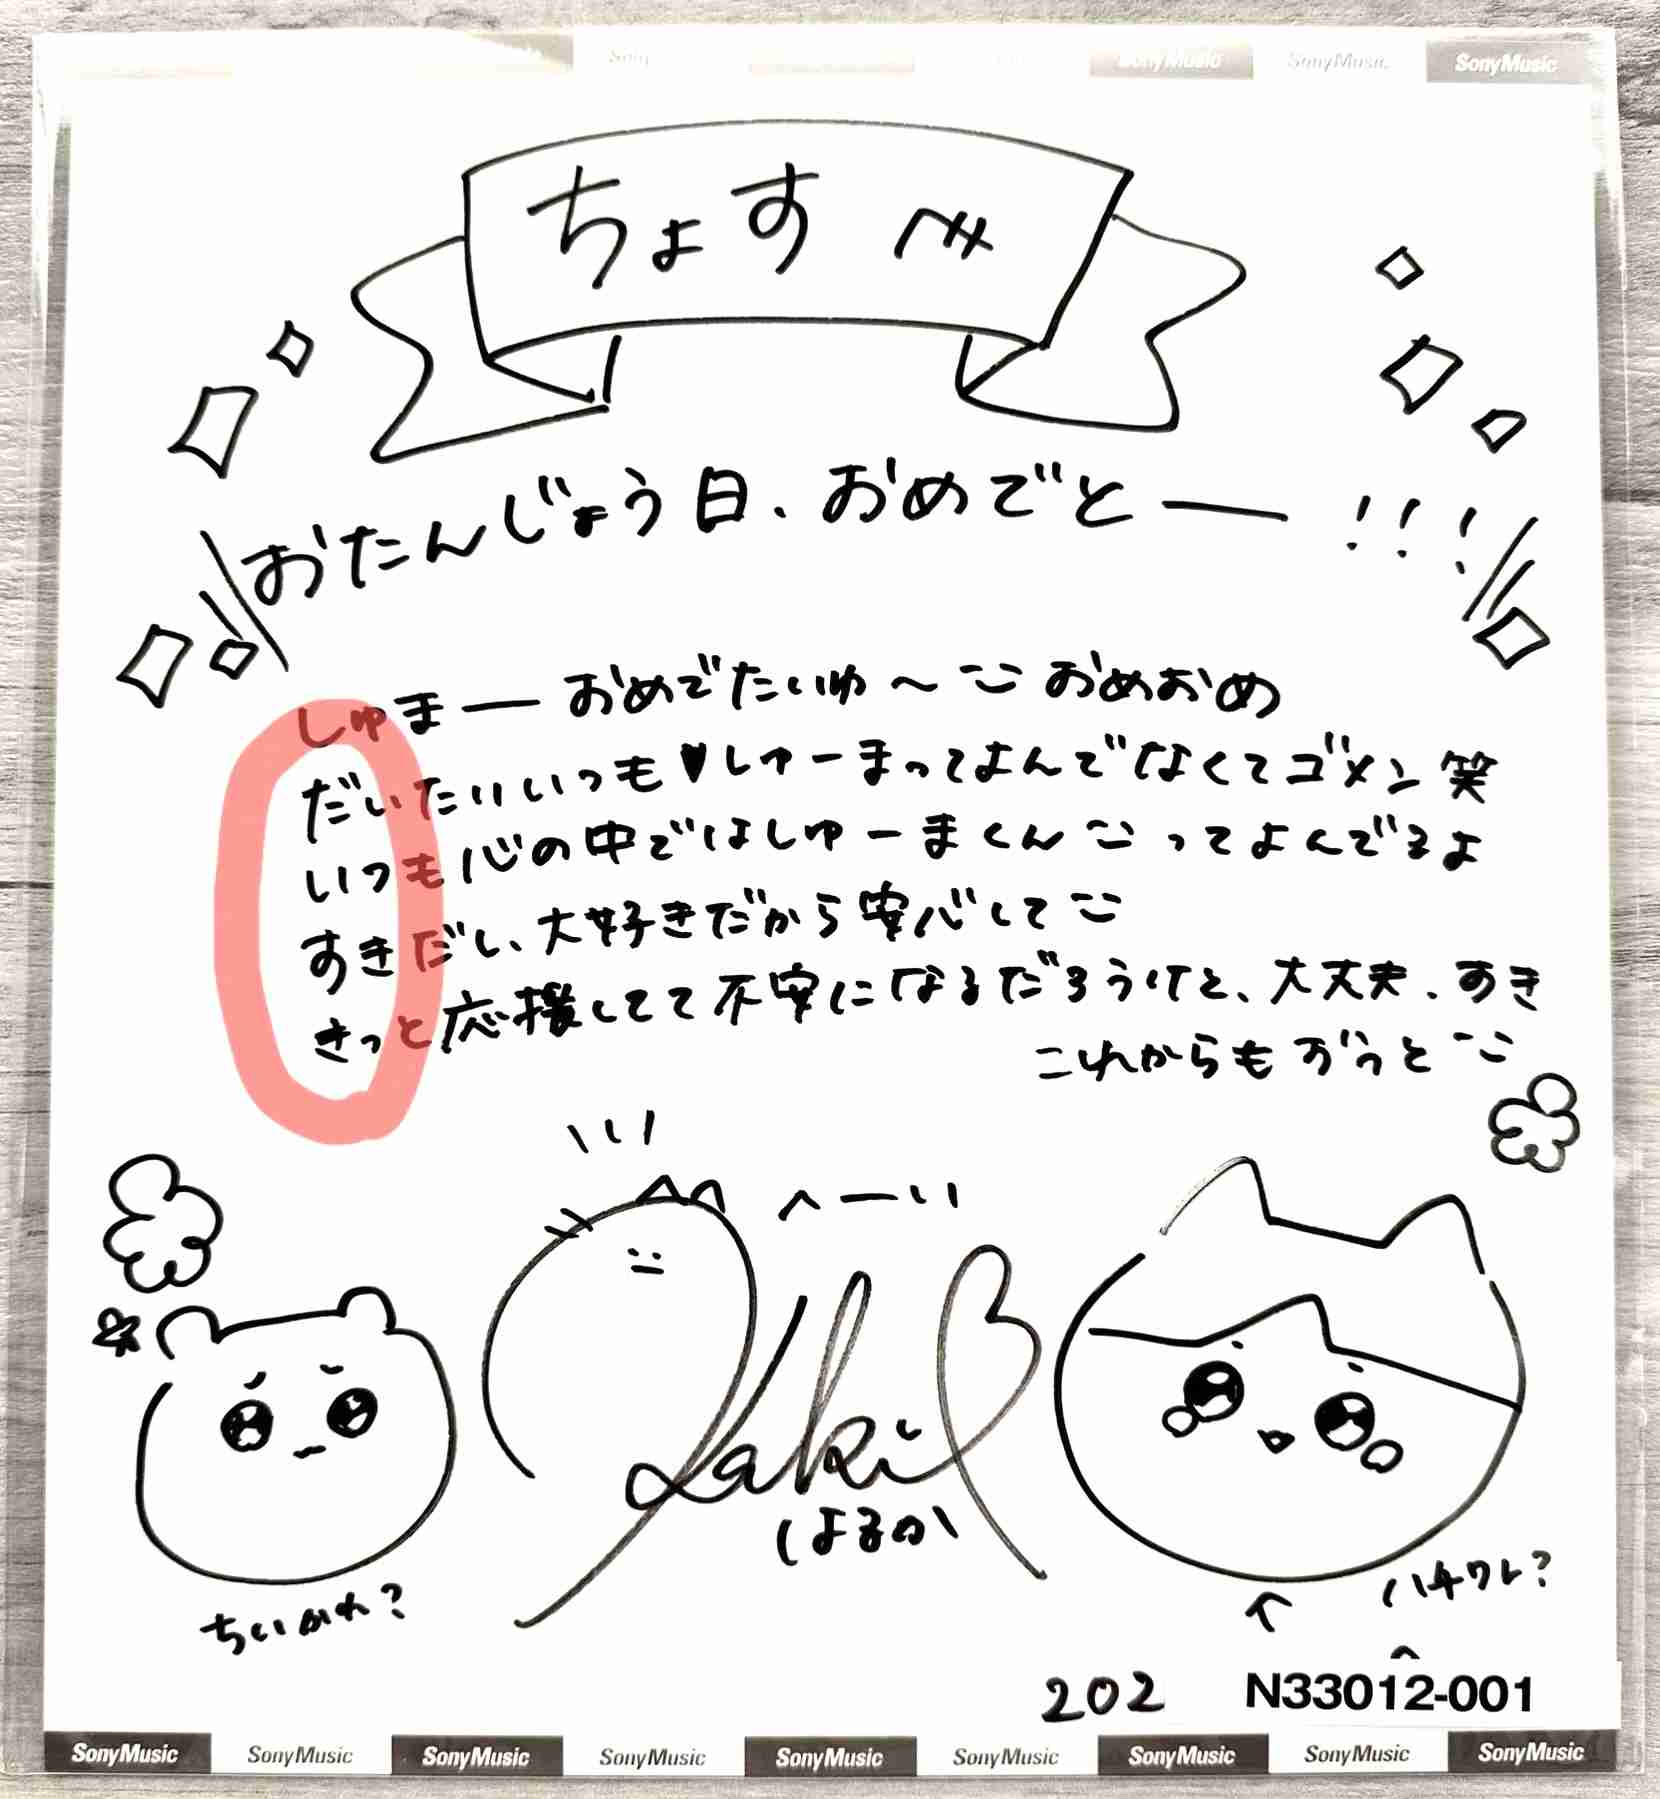 SonyMusic SonyMusic SonyMusic
ちょす
おたんじょう日、おめでとー!!!
しゅまーおめでたいゆ〜おめおめ
だいたいいつも♥しゅーまってよんでなくてゴメン笑
いつも心の中ではしゅーまくんってよんでるよ
すきだし、大好きだから安心して
きっと応援してて不安になるだろうけど、大丈夫、すき
これからもずっと
へーい
はるか
ちいかわ?
ハチワレ?
202 N33012-001
SonyMusic SonyMusic SonyMusic SonyMusic SonyMusic SonyMusic SonyMusic SonyMusic SonyMusic